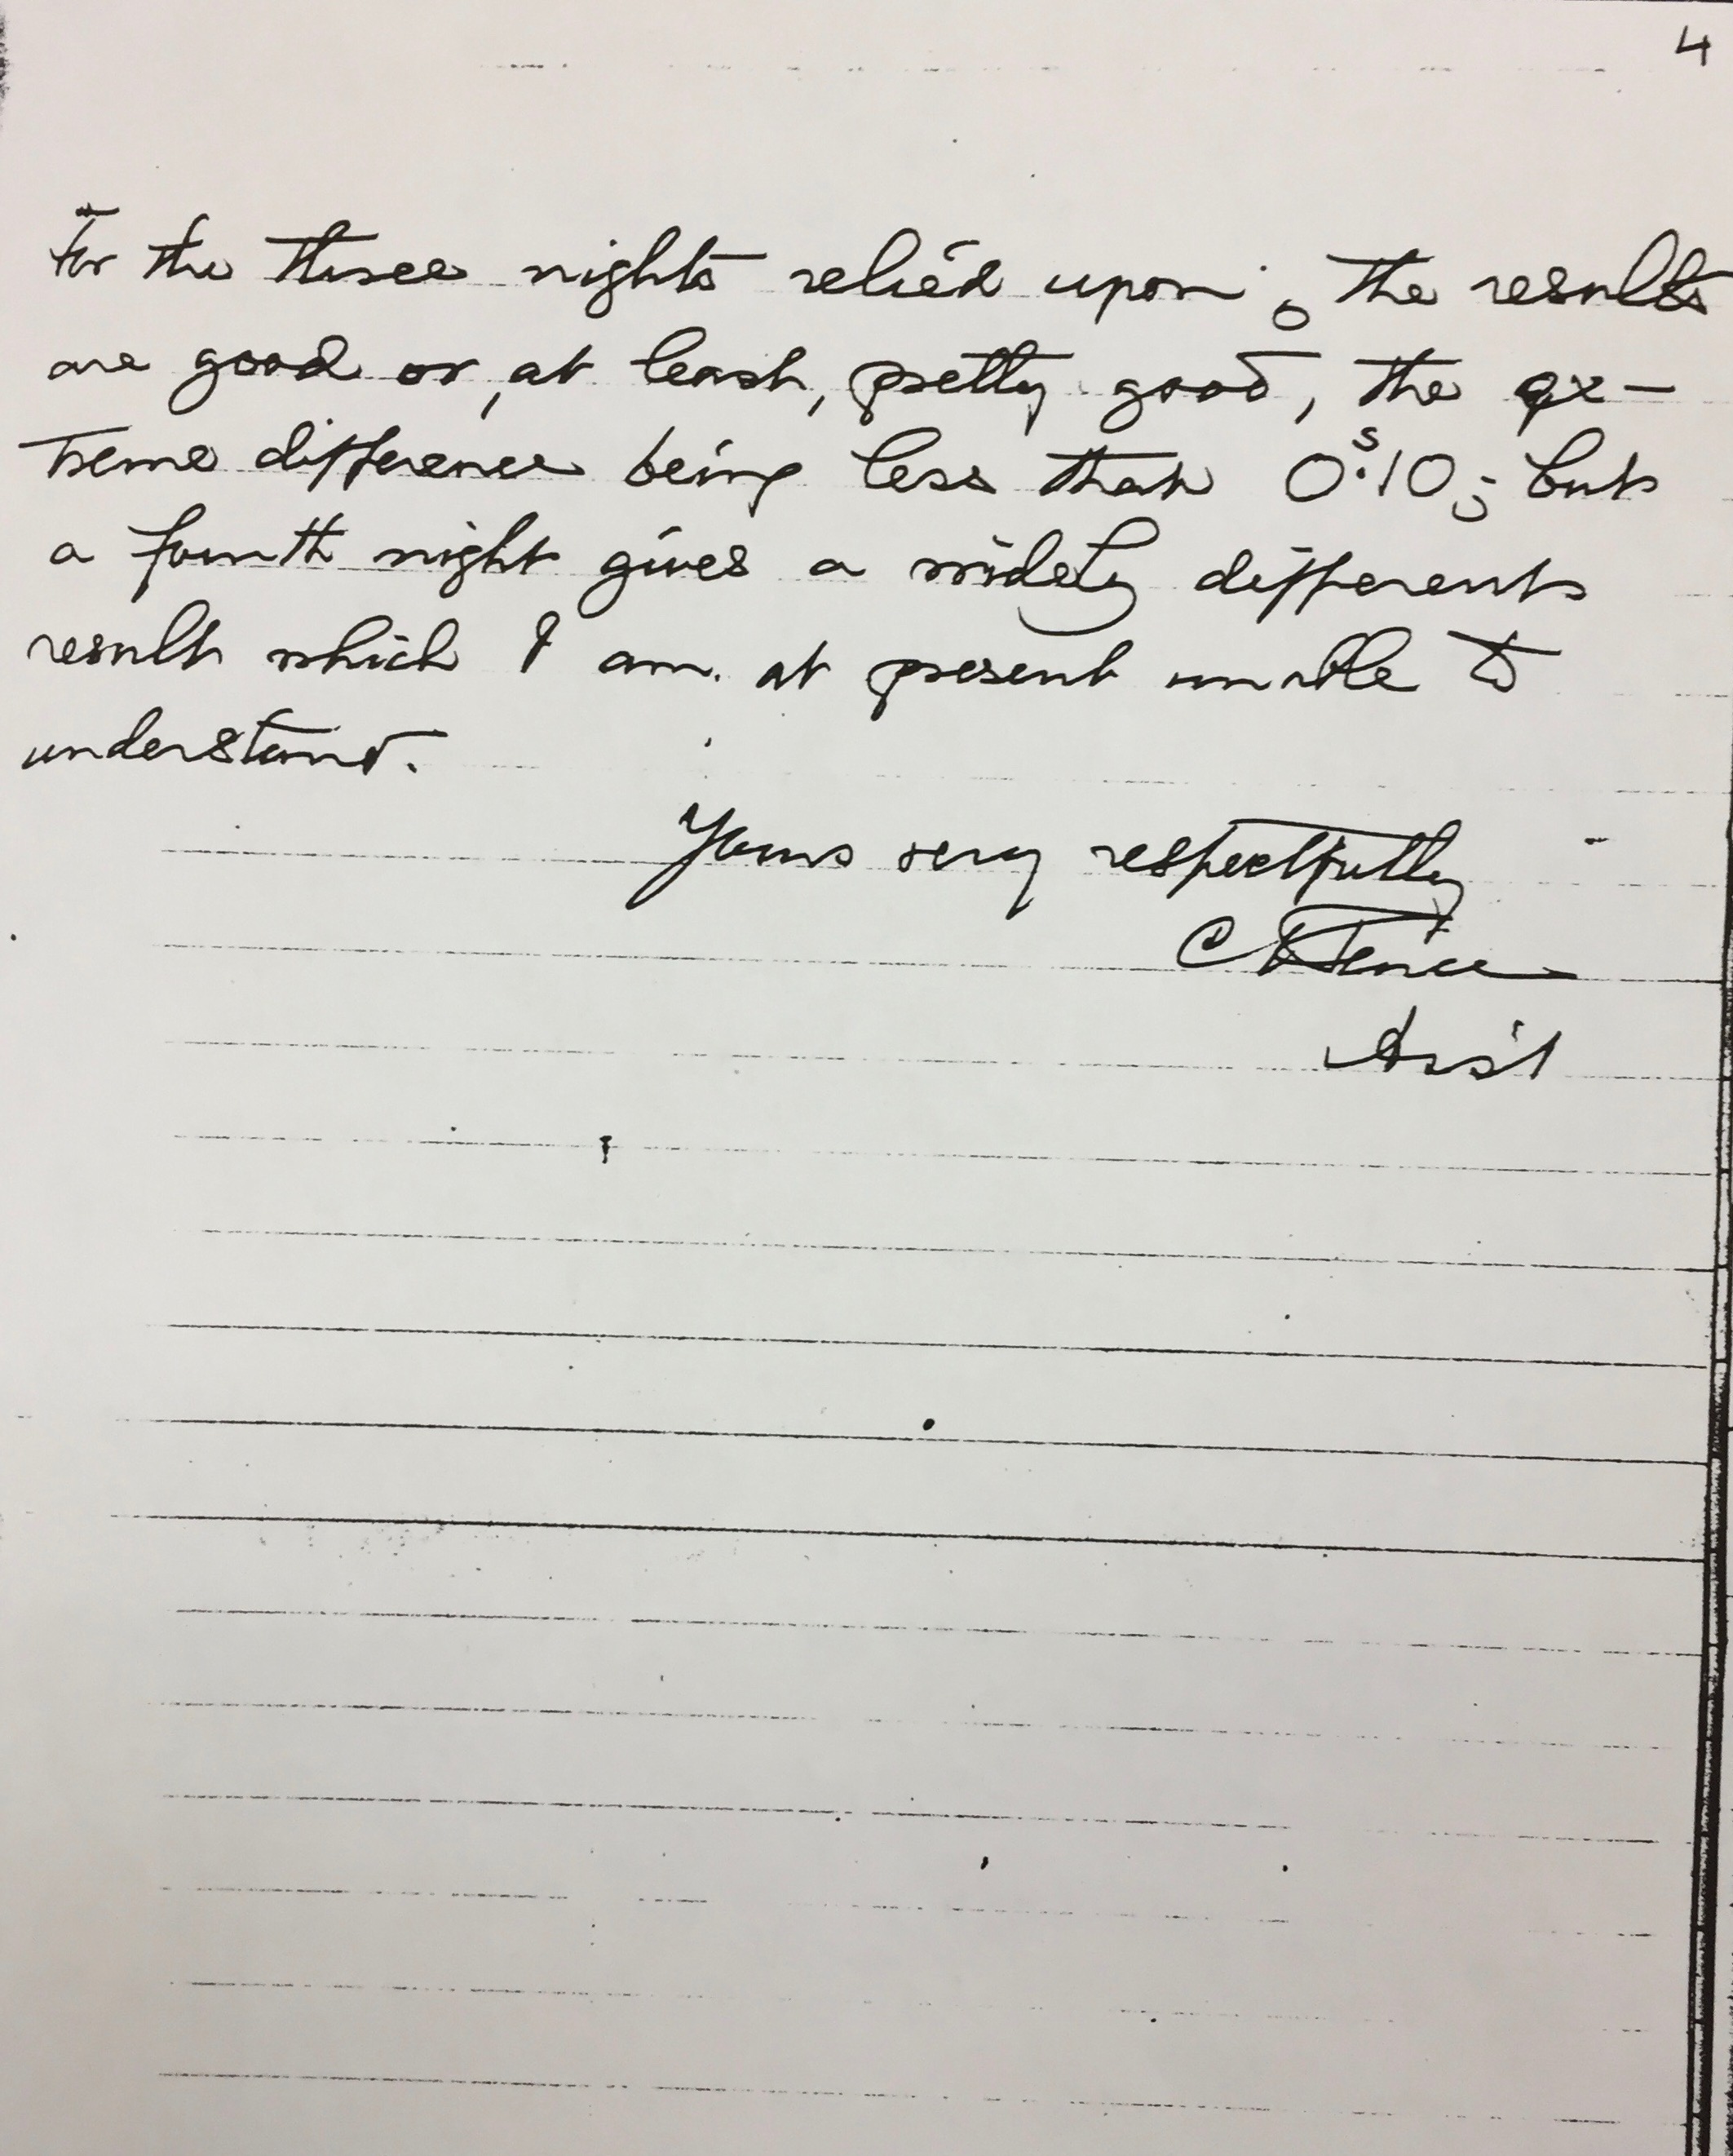 4
For the three nights relied upon, the results
are good or, at least, pretty good, the ex-
treme difference being less than 0ˢ.10; but
a fourth night gives a widely different
result which I am at present unable to
understand.
Yours very respectfully
C S Peirce
Ass't